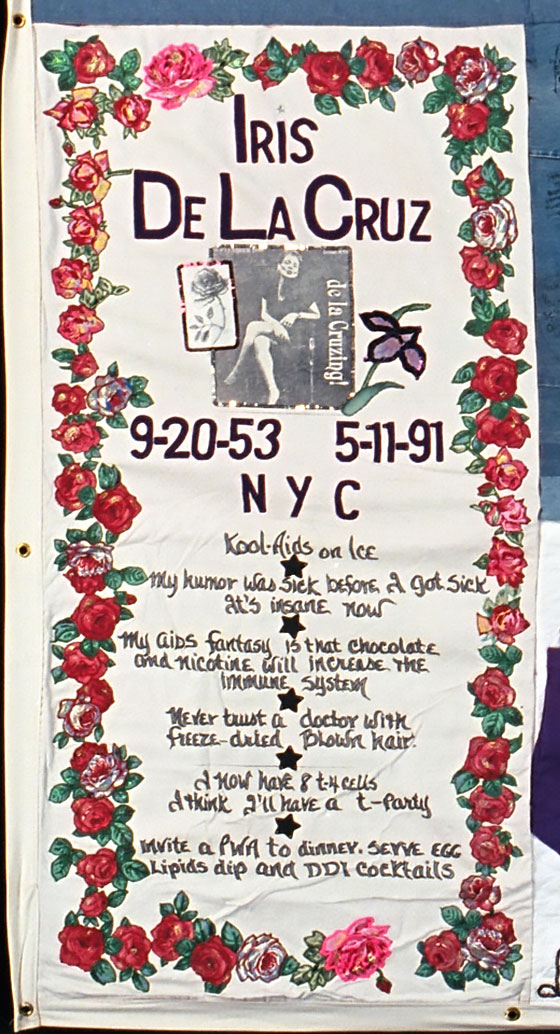 IRIS
DE LA CRUZ
de la Cruzing!
9-20-53 5-11-91
NYC
Kool-Aids on Ice
My humor was sick before I got sick
It's insane now
My aids fantasy is that chocolate
and nicotine will increase the
immune system
Never trust a doctor with
freeze-dried blown hair.
I now have 8 t-4 cells
I think I'll have a t-Party
invite a PWA to dinner. Serve EGG
Lipids dip and DDI cocktails